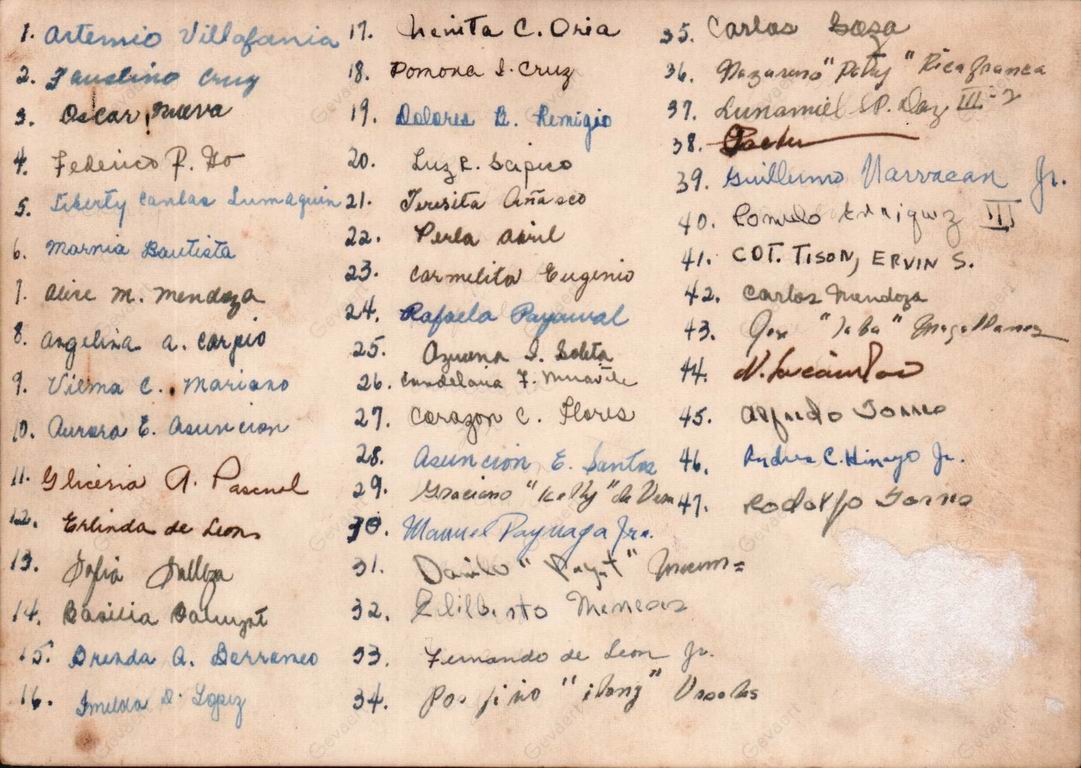 1. Artemio Villafania
2. Faustino Cruz
3. Oscar Nueva
4. Federico P. Ho
5. Liberty Canlas Lumaquin
6. Marnia Bautista
7. Alice M. Mendoza
8. Angelina A. Carpio
9. Vilma C. Mariano
10. Aurora E. Asuncion
11. Gliceria A. Pascual
12. Erlinda de Leon
13. Sofia
14. Basilia
15. Brenda A. Barraneo
16. Imelda D. Lopez
17. Nenita C. Oria
18. Pomona I. Cruz
19. Dolores B. Remigio
20. Luz R. Sapico
21. Teresita Añasco
22. Perla Abril
23. Carmelita Eugenio
24. Rafaela Payawal
25. Azucena I. Soleta
26. Candelaria F.
27. Corazon C. Flores
28. Asuncion E. Santos
29. Graciano de Vera
30. Manuel Paynaga Jr.
31. Danilo "Payat"
32. Filiberto Meneses
33. Fernando de Leon Jr.
34.
35. Carlos Soza
36. Nazareno Ricafranca
37. Lunamiel SP. Daz III-2
38.
39. Guillermo Narvacan Jr.
40. Romulo Enriquez III
41. CDT. TISON, ERVIN S.
42. Carlos Mendoza
43.
44.
45. Alfredo Torres
46. Andres C. Hinayo Jr.
47. Rodolfo Torres
Gevaert